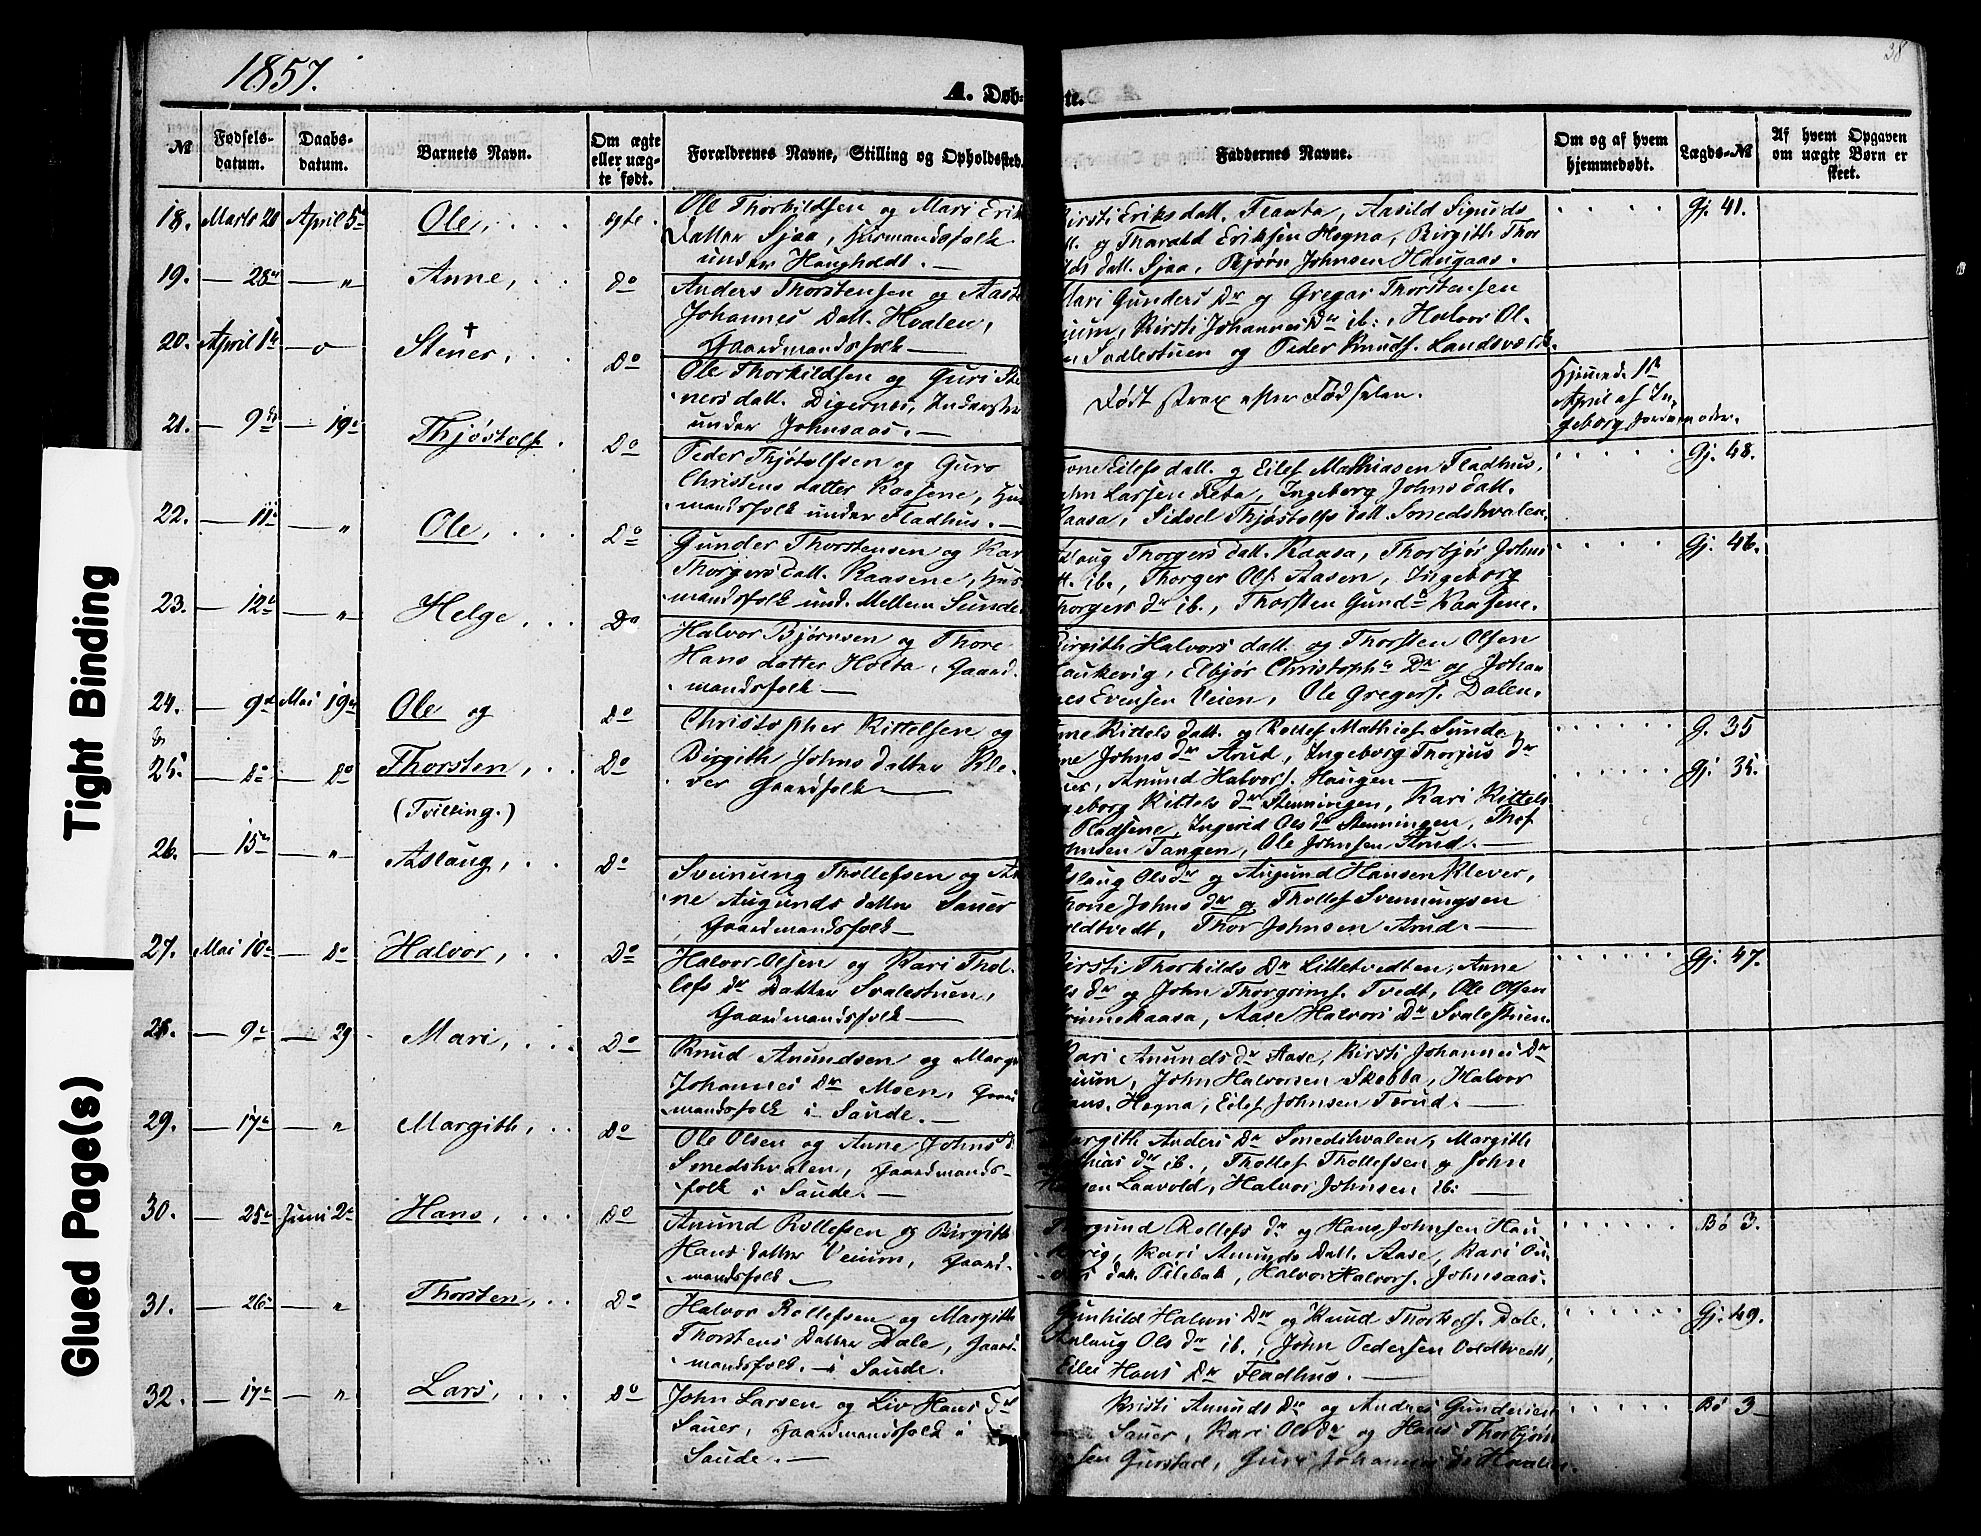 38
1857.
A. Døb-
te.
№
Fødsels-
datum.
Daabs-
datum.
Barnets Navn.
Om ægte
eller uæg-
te født.
Forældrenes Navne, Stilling og Opholdssted.
Faddernes Navne.
Om og af hvem
hjemmedøbt.
Lægds-№
Af hvem Opgaven
om uægte Børn er
skeet.
18. Marts 20 April 5te Ole, egte.
Ole Thorkildsen og Mari Eriks
Datter Sjaa, Husmandsfolk
under Haugholdt. —
Kirsti Eriksdatt. Flaata, Aasild Sigurds
datt. og Tharald Eriksen Hogna, Birgith Thor
kilds datt. Sjaa, Bjørn Johnsen Haugaas.
Gj. 41.
19. — 28de — " Anne, Do
Anders Thorstensen og Aaste
Johannes Datt. Hvalen,
Gaardmandsfolk —
Mari Gunders Dr og Gregar Thorstensen
Kirsti Johannes Dr ib:, Halvor Ol-
Svalestuen og Peder Knuds. Landsværk.
20. April 1ste — o Stener, † Do
Ole Thorkildsen og Guri Ste
nersdatt. Digernes, Inderster
under Johnsaas. —
Født strax efter Fødselen.
Hjemmed. 1ste
April af In-
geborg Jordemoder.
21. — 9de — 19de Thjøstolf. Do
Peder Thjøstolfsen og Guro
Christensdatter Kaasene, Hus
mandsfolk under Fladhus. —
Tone Eilefsdatt. og Eilef Mathiasen Fladhus,
John Larsen Reta, Ingeborg Johnsdatt.
Kaasa, Sidsel Thjøstolfs datt. Smedshvalen.
Gj. 48.
22. — 11te — " Ole, Do
Gunder Thorstensen og Kari
Thorgersdatt. Kaasene, Hus
mandsfolk und. Mellem Sunde
Aslaug Thorgers datt. Kaasa, Thorbjør Johns
datt. ib., Thorger Ols. Aasen, Ingeborg
Thorgers dr ib., Thorsten Gunds Kaasene.
Gj. 46.
23. — 12te — " Helge, Do
Halvor Bjørnsen og Thore
Hans datter Holta, Gaard
mandsfolk —
Birgith Halvors datt. og Thorsten Olsen
Haukevig, Elbjør Christophs Dr og Johan
nes Evensen Veien, Ole Gregers. Dalen.
24. — 9de Mai 19de Ole og Do
Christopher Kittelsen og
Birgith Johns datter Kle-
ver Gaardfolk —
Anne Kittels datt. og Rollef Mathies. Sunde,
Johns dr Arud, Ingeborg Thorjus dr
Anund Halvors. Haugen —
G. 35
25 — Do — Do Thorsten, Do
(Tvilling.)
Ingeborg Kittels dr Stenningen, Kari Kittels
Ingerid Ols dr Stenningen, Thor
Johnsen Tangen, Ole Johnsen Arud. —
Gj. 35.
26. — 15de — " Aslaug, Do
Sveinung Thollefsen og An
ne Augunds datter Sauer
Gaardmandsfolk —
Aslaug Olsdr og Augund Hansen Klever,
Thone Johns dr og Thollef Svenningsen
Oldtvedt, Thor Johnsen Arud. —
27. Mai 10de — Do Halvor, Do
Halvor Olsen og Kari Thol-
lefs dr Datter Svalestuen,
Gaardmandsfolk —
Kirsti Thorkilds Dr Litletvedten, Anne
Ols dr og John Thorgrims. Tvedt, Ole Olsen
Aase Halvors Dr Svalestuen.
Gj. 47.
28. — 9de — 29 Mari, Do
Knud Anundsen og Margit
Johannes Dr Moen, Gaard
mandsfolk i Saude. —
Kari Anunds dr Aase, Kirsti Johannes Dr
John Halvorsen Skebba, Halvor
Hans. Hogna, Eilef Johnsen Terud. —
29. — 17de — " Margith, Do
Ole Olsen og Anne Johns d.
Smedshvalen, Gaardmands-
folk i Saude. —
Margith Anders Dr Smedshvalen, Margith
Mathias dr ib., Thollef Thollefsen og John
Hansen Laavold, Halvor Johnsen ib: —
30. — 25de Juni 2de Hans, Do
Anund Rollefsen og Birgith
Hans datter Veium, Gaard-
mandsfolk —
Rollefs dr og Hans Johnsen Hau
kevig, Kari Anunds Datt. Aase, Kari
datt. Pilebak, Halvor Halvors. Johnsaas.
Bø 3.
31. — 26de — " Thorsten, Do
Halvor Rollefsen og Margith
Thorstens Datter Dale, Gaard
mandsfolk. — i Saude.
Gunhild Halvors Dr og Knud Thorstens. Dale.
Aslaug Ols dr ib., John Pedersen Ooldtvedt,
Eilev Hans Dr Fladhus. —
Gj. 49.
32. — 17de — " Lars, Do
John Larsen og Liv Hans dr
Sauer, Gaardmandsfolk i
Saude. —
Kristi Anunds dr og Andres Gundersen
Sauer, Kari Ols dr og Hans Thorbjørn
sen Gurstad, Guri Johannes dr Hvalen.
Bø 3 —
Tight Binding
Glued Page(s)